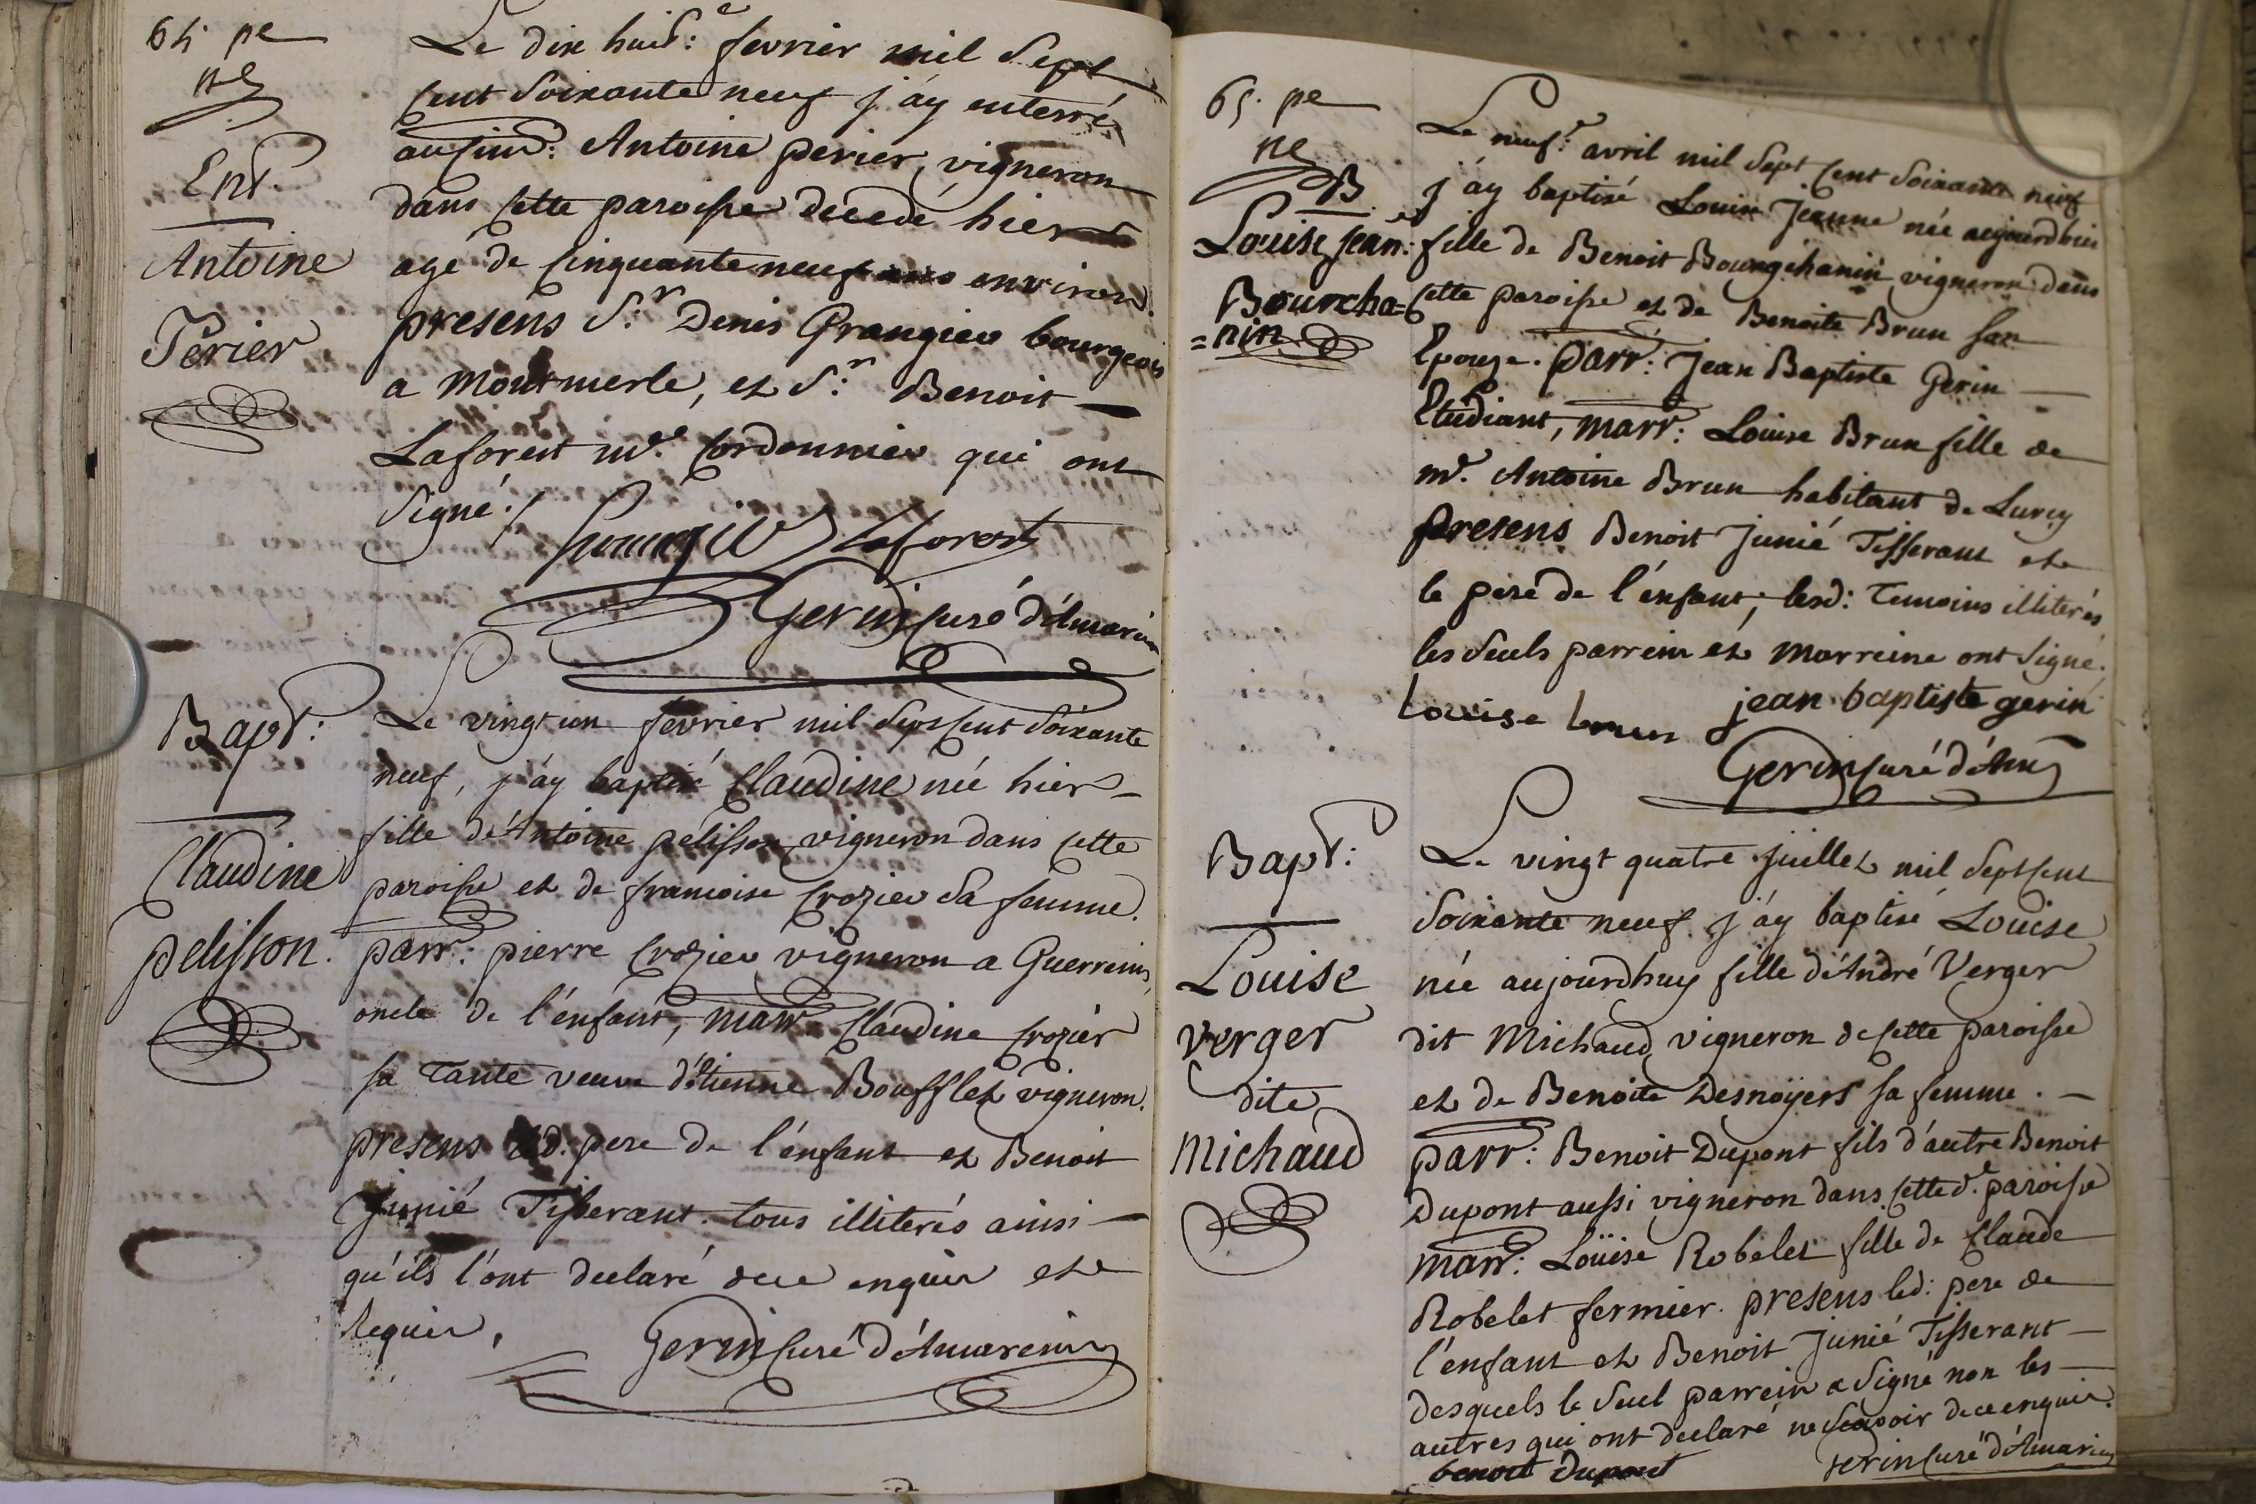 64. pe
ne
Ent.
Antoine
Perier
Le dix huit.e fevrier mil Sept
Cent Soixante neuf j'ay enterré
au Cime.: Antoine perier, vigneron
dans Cette paroisse decedé hier
agé de Cinquante neuf ans environ
presens S.r Denis Grangier bourgeois
a Montmerle, et S.r Benoit
Laforest m.e Cordonnier qui ont
Signé./.
Laforest
Gerin Curé d'Amareins
Bapt:
Claudine
pelisson.
Le vingt un fevrier mil Sept Cent Soixante
neuf, j'ay baptisé Claudine née hier
fille d'Antoine pélisson vigneron dans Cette
paroisse et de francoise Crozier Sa femme.
parr: pierre Crozier vigneron a Guerreins,
oncle de l'énfant, marr: Claudine Crozier
sa Tante veuve d'Etienne Boufflet vigneron.
presens led: pere de l'énfant et Benoit
Junié Tisserant. tous illiterés ainsi
qu'ils l'ont declaré de ce enquis et
Requis,
Gerin Curé d'Amareins
65. pe
ne
B
Louise Jean:e
Bourcha=
=nin
Le neuf.e avril mil Sept Cent Soixante neuf
j'ay baptisé Louise Jeanne née aujourdhui
fille de Benoit Bourgchanin vigneron dans
Cette paroisse et de Benoite Brun Son
Epouze. parr: Jean Baptiste Gerin
Etudiant, marr: Louise Brun fille de
m.e Antoine Brun habitant de Lurcy
presens Benoit Junié Tisserant et
le pere de l'énfant, lesd: Temoins illiterés
les Seuls parrein et Marreine ont Signé.
Louise brun jean baptiste gerin
Gerin Curé d'Am
Bapt:
Louise
verger
dite
Michaud
Le vingt quatre Juillet mil Sept Cent
Soixante neuf j'ay baptisé Louise
née aujourdhuy fille d'André Verger
dit Michaud vigneron de Cette paroisse
et de Benoite Desnoyers sa femme.
parr: Benoit Dupont fils d'autre Benoit
Dupont aussi vigneron dans Cetted.e paroisse
marr: Loüise Robelet fille de Claude
Robelet fermier. presens led: pere de
l'énfant et Benoit Junié Tisserant
desquels le Seul parrein a Signé non les
autres qui ont declaré ne Scavoir de ce enquis.
benoit Dupont Gerin Curé d'Amareins